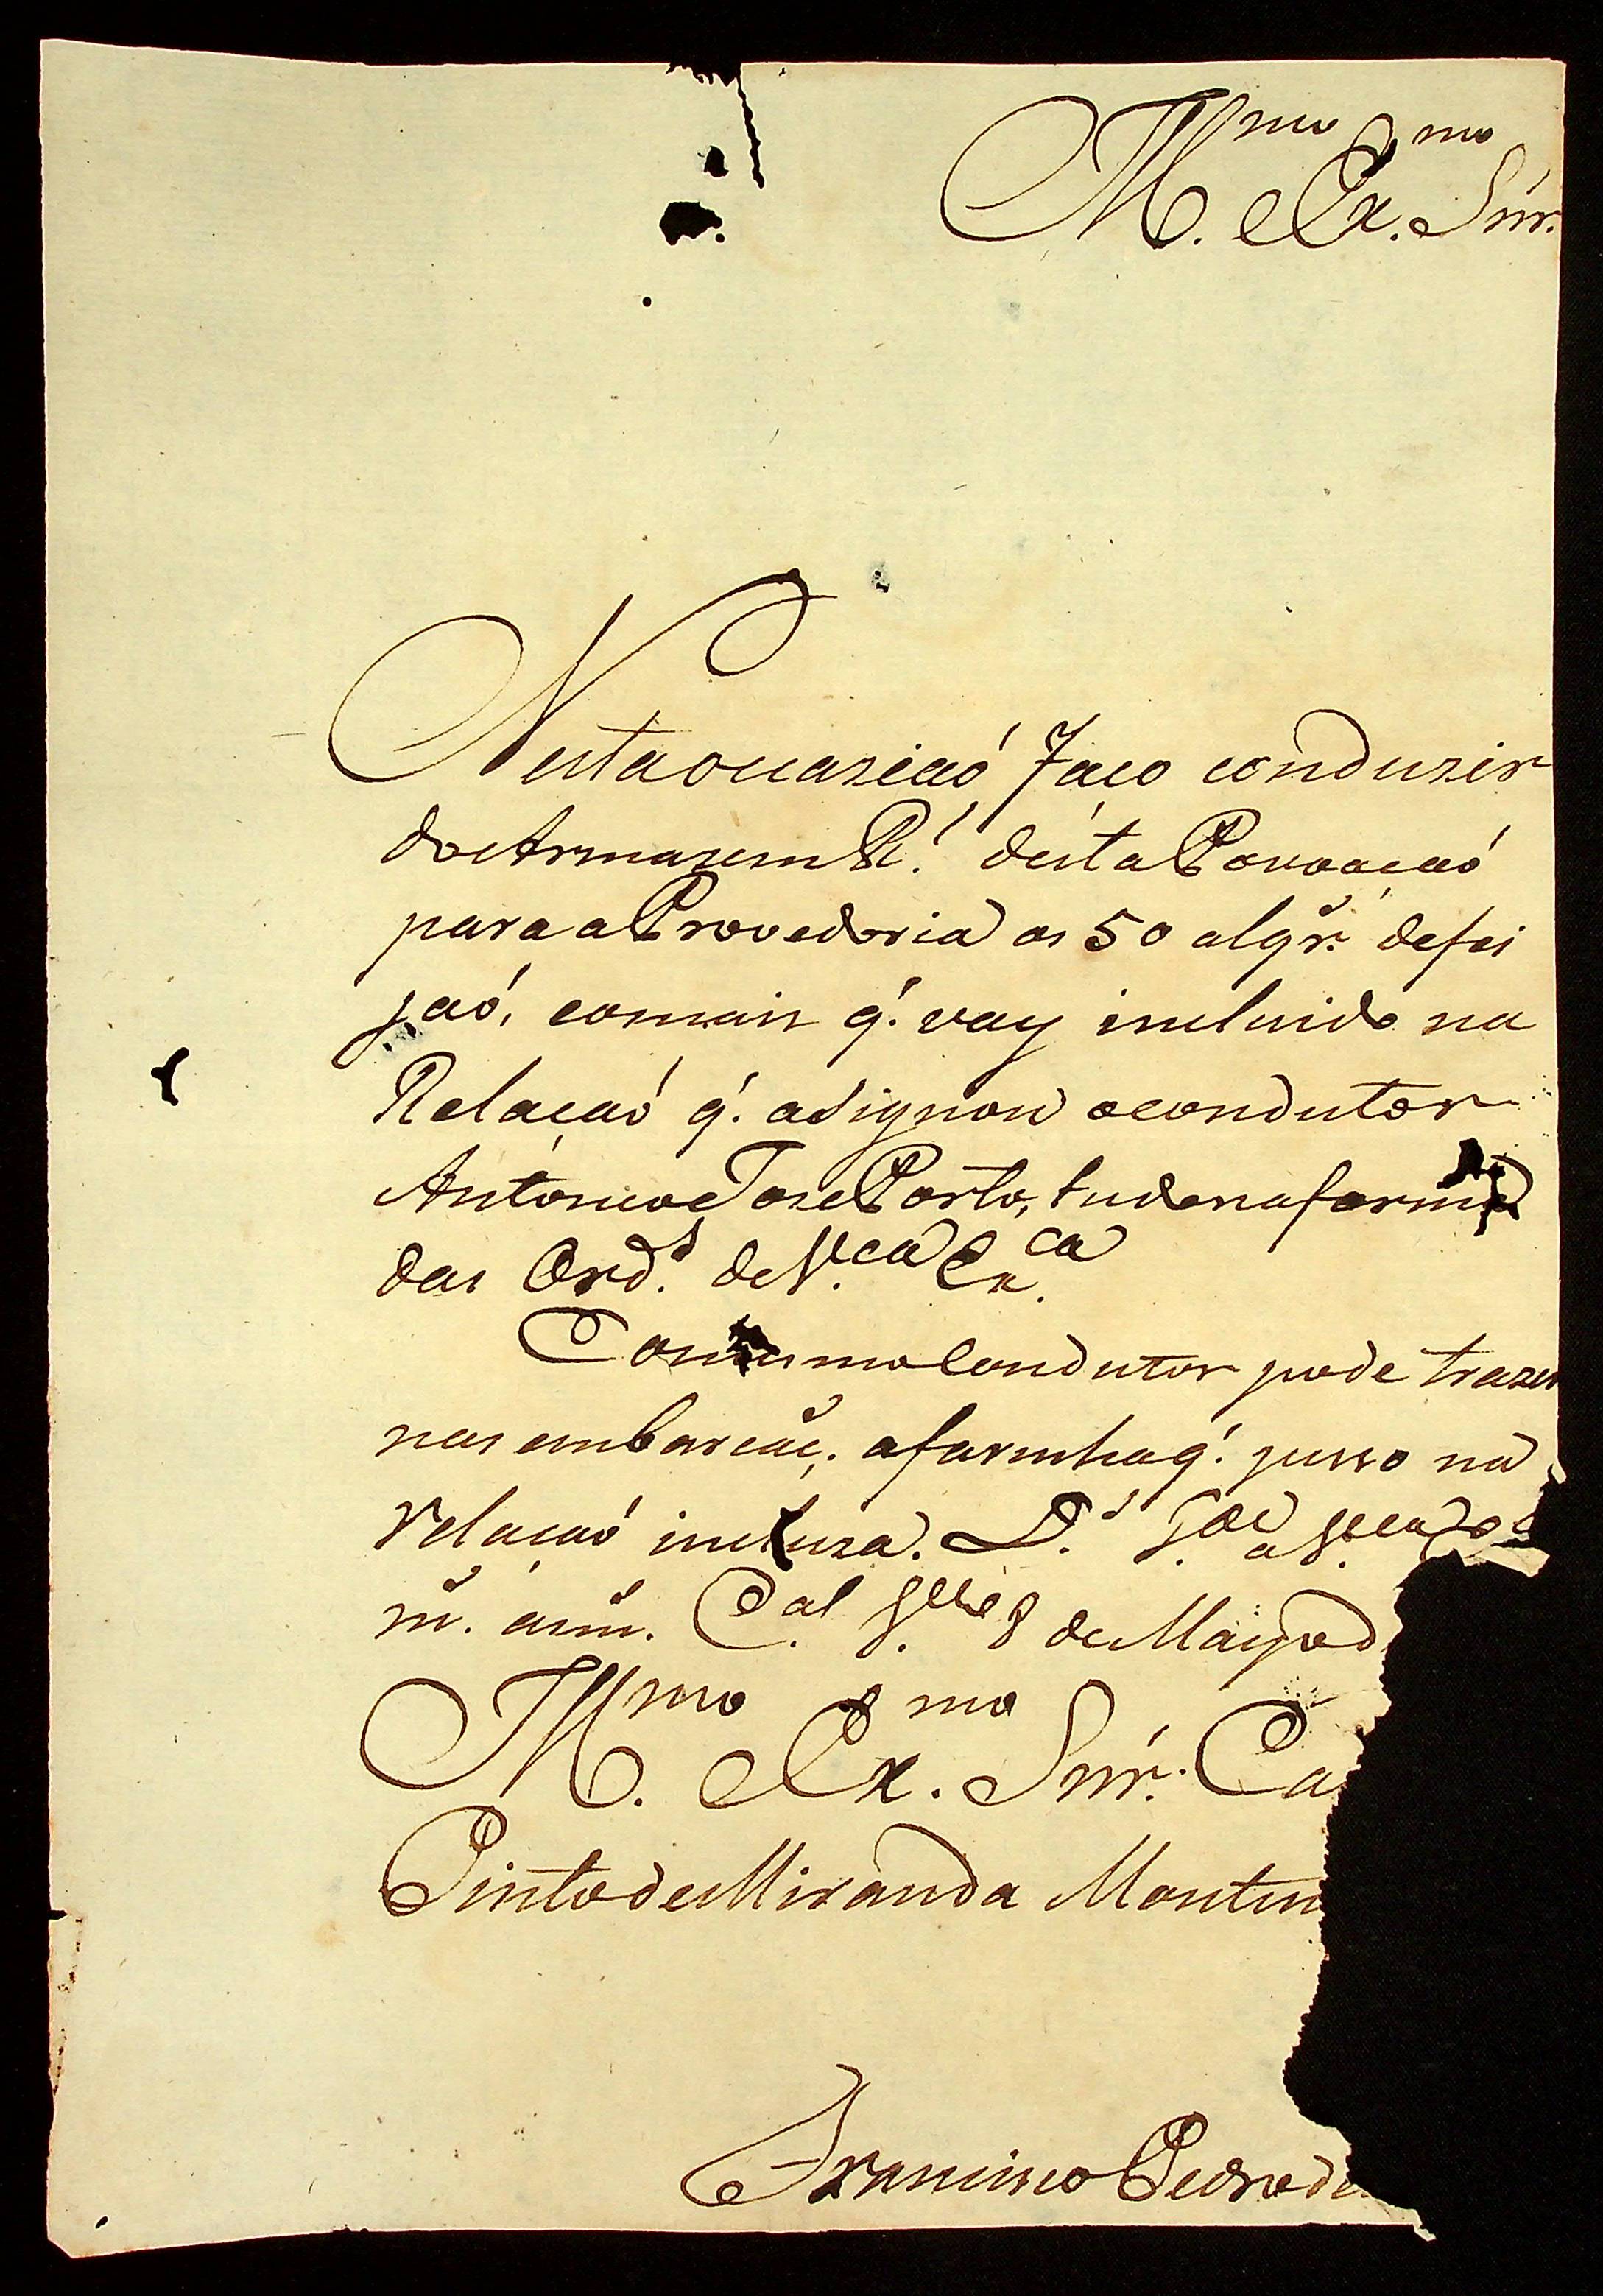 Ill.mo e Ex.mo Snr.
Nesta ocaziaó faço conduzir
do Armazem R.l desta Povoaçaó
para a Provedoria os 50 alqr. de fei
jaó, e o mais q. vay incluido na
Relaçaó q. asignou o condutor
Antonio Joze Porto, tudo na forma
das Ord.s de V.ca Ex.ca
O mesmo Condutor pode trazer
nas embarcaç. a farinha q. puxo na
relaçaó incluza. D.s G.de a V.ca
m. ann. C.al 8 de Março d
Ill.mo e Ex.mo Snr. Ca
Pinto de Miranda Monten
Francisco Pedro de